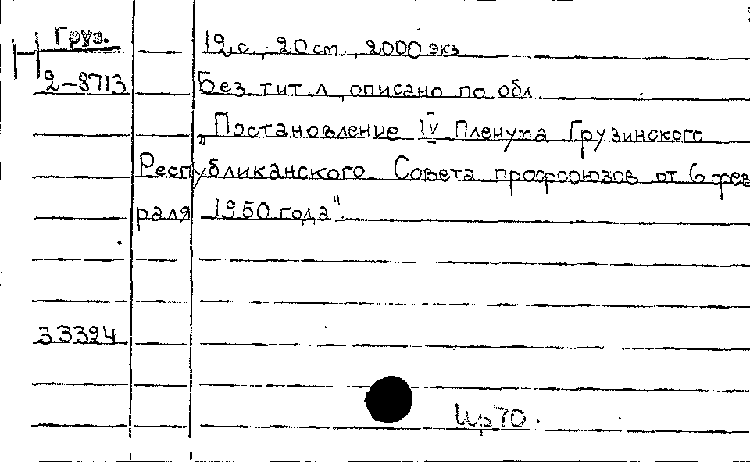 Груз.
12 с., 20 см., 2000 экз
2-8713
Без тит. л., описано по обл.
„Постановление IV Пленума Грузинского
Республиканского Совета профсоюзов от 6 фев
раля 1950 года".
33324